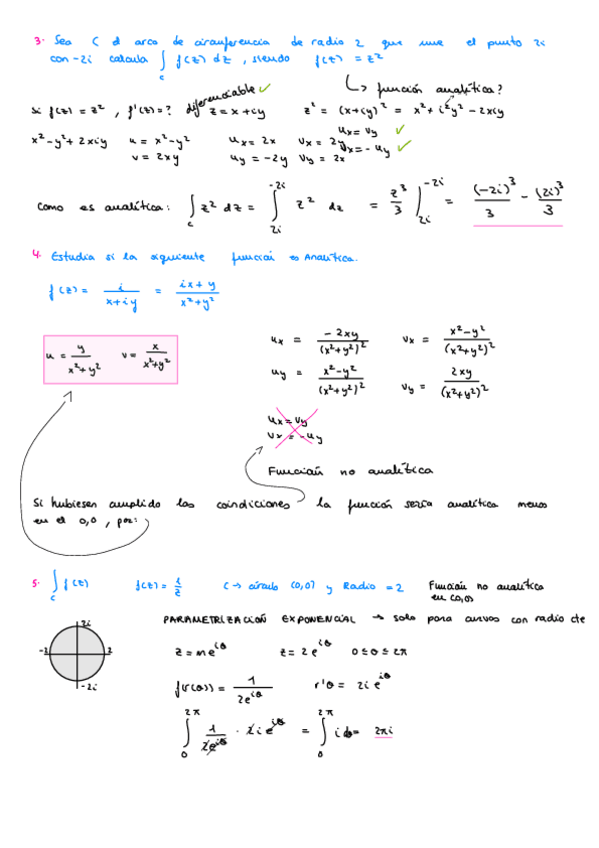 3. Sea C el arco de circunferencia de radio 2 que une el punto 2i
con -2i calcula ∫c f(z) dz, siendo f(z) = z²
↳ función analítica?
si f(z) = z², f'(z)=? diferenciable ✓ z = x + iy z² = (x+iy)² = x² + i²y² - 2xiy
x² - y² + 2xiy u = x² - y² ux = 2x vx = 2y ux = vy ✓
v = 2xy uy = -2y vy = 2x vx = -uy ✓
como es analítica: ∫c z² dz = ∫2i^-2i z² dz = z³/3 |2i^-2i = (-2i)³/3 - (2i)³/3
4. Estudia si la siguiente función es Analítica.
f(z) = i/(x+iy) = (ix + y)/(x²+y²)
u = y/(x²+y²) v = x/(x²+y²) ux = -2xy/(x²+y²)² vx = x²-y²/(x²+y²)²
uy = x²-y²/(x²+y²)² vy = 2xy/(x²+y²)²
ux = vy
vx = -uy
Función no analítica
Si hubiesen cumplido las condiciones la función sería analítica menos
en el 0,0, por:
5. ∫c f(z) f(z) = 1/z C → círculo (0,0) y Radio = 2 Función no analítica
en (0,0)
PARAMETRIZACIÓN EXPONENCIAL → solo para curvas con radio cte
2i
-2 2
-2i
z = m e^iθ z = 2 e^iθ 0 ≤ θ ≤ 2π
f(r(θ)) = 1/(2e^iθ) r'θ = 2i e^iθ
∫0^2π 1/(2e^iθ) · 2i e^iθ = ∫0^2π i dθ = 2πi